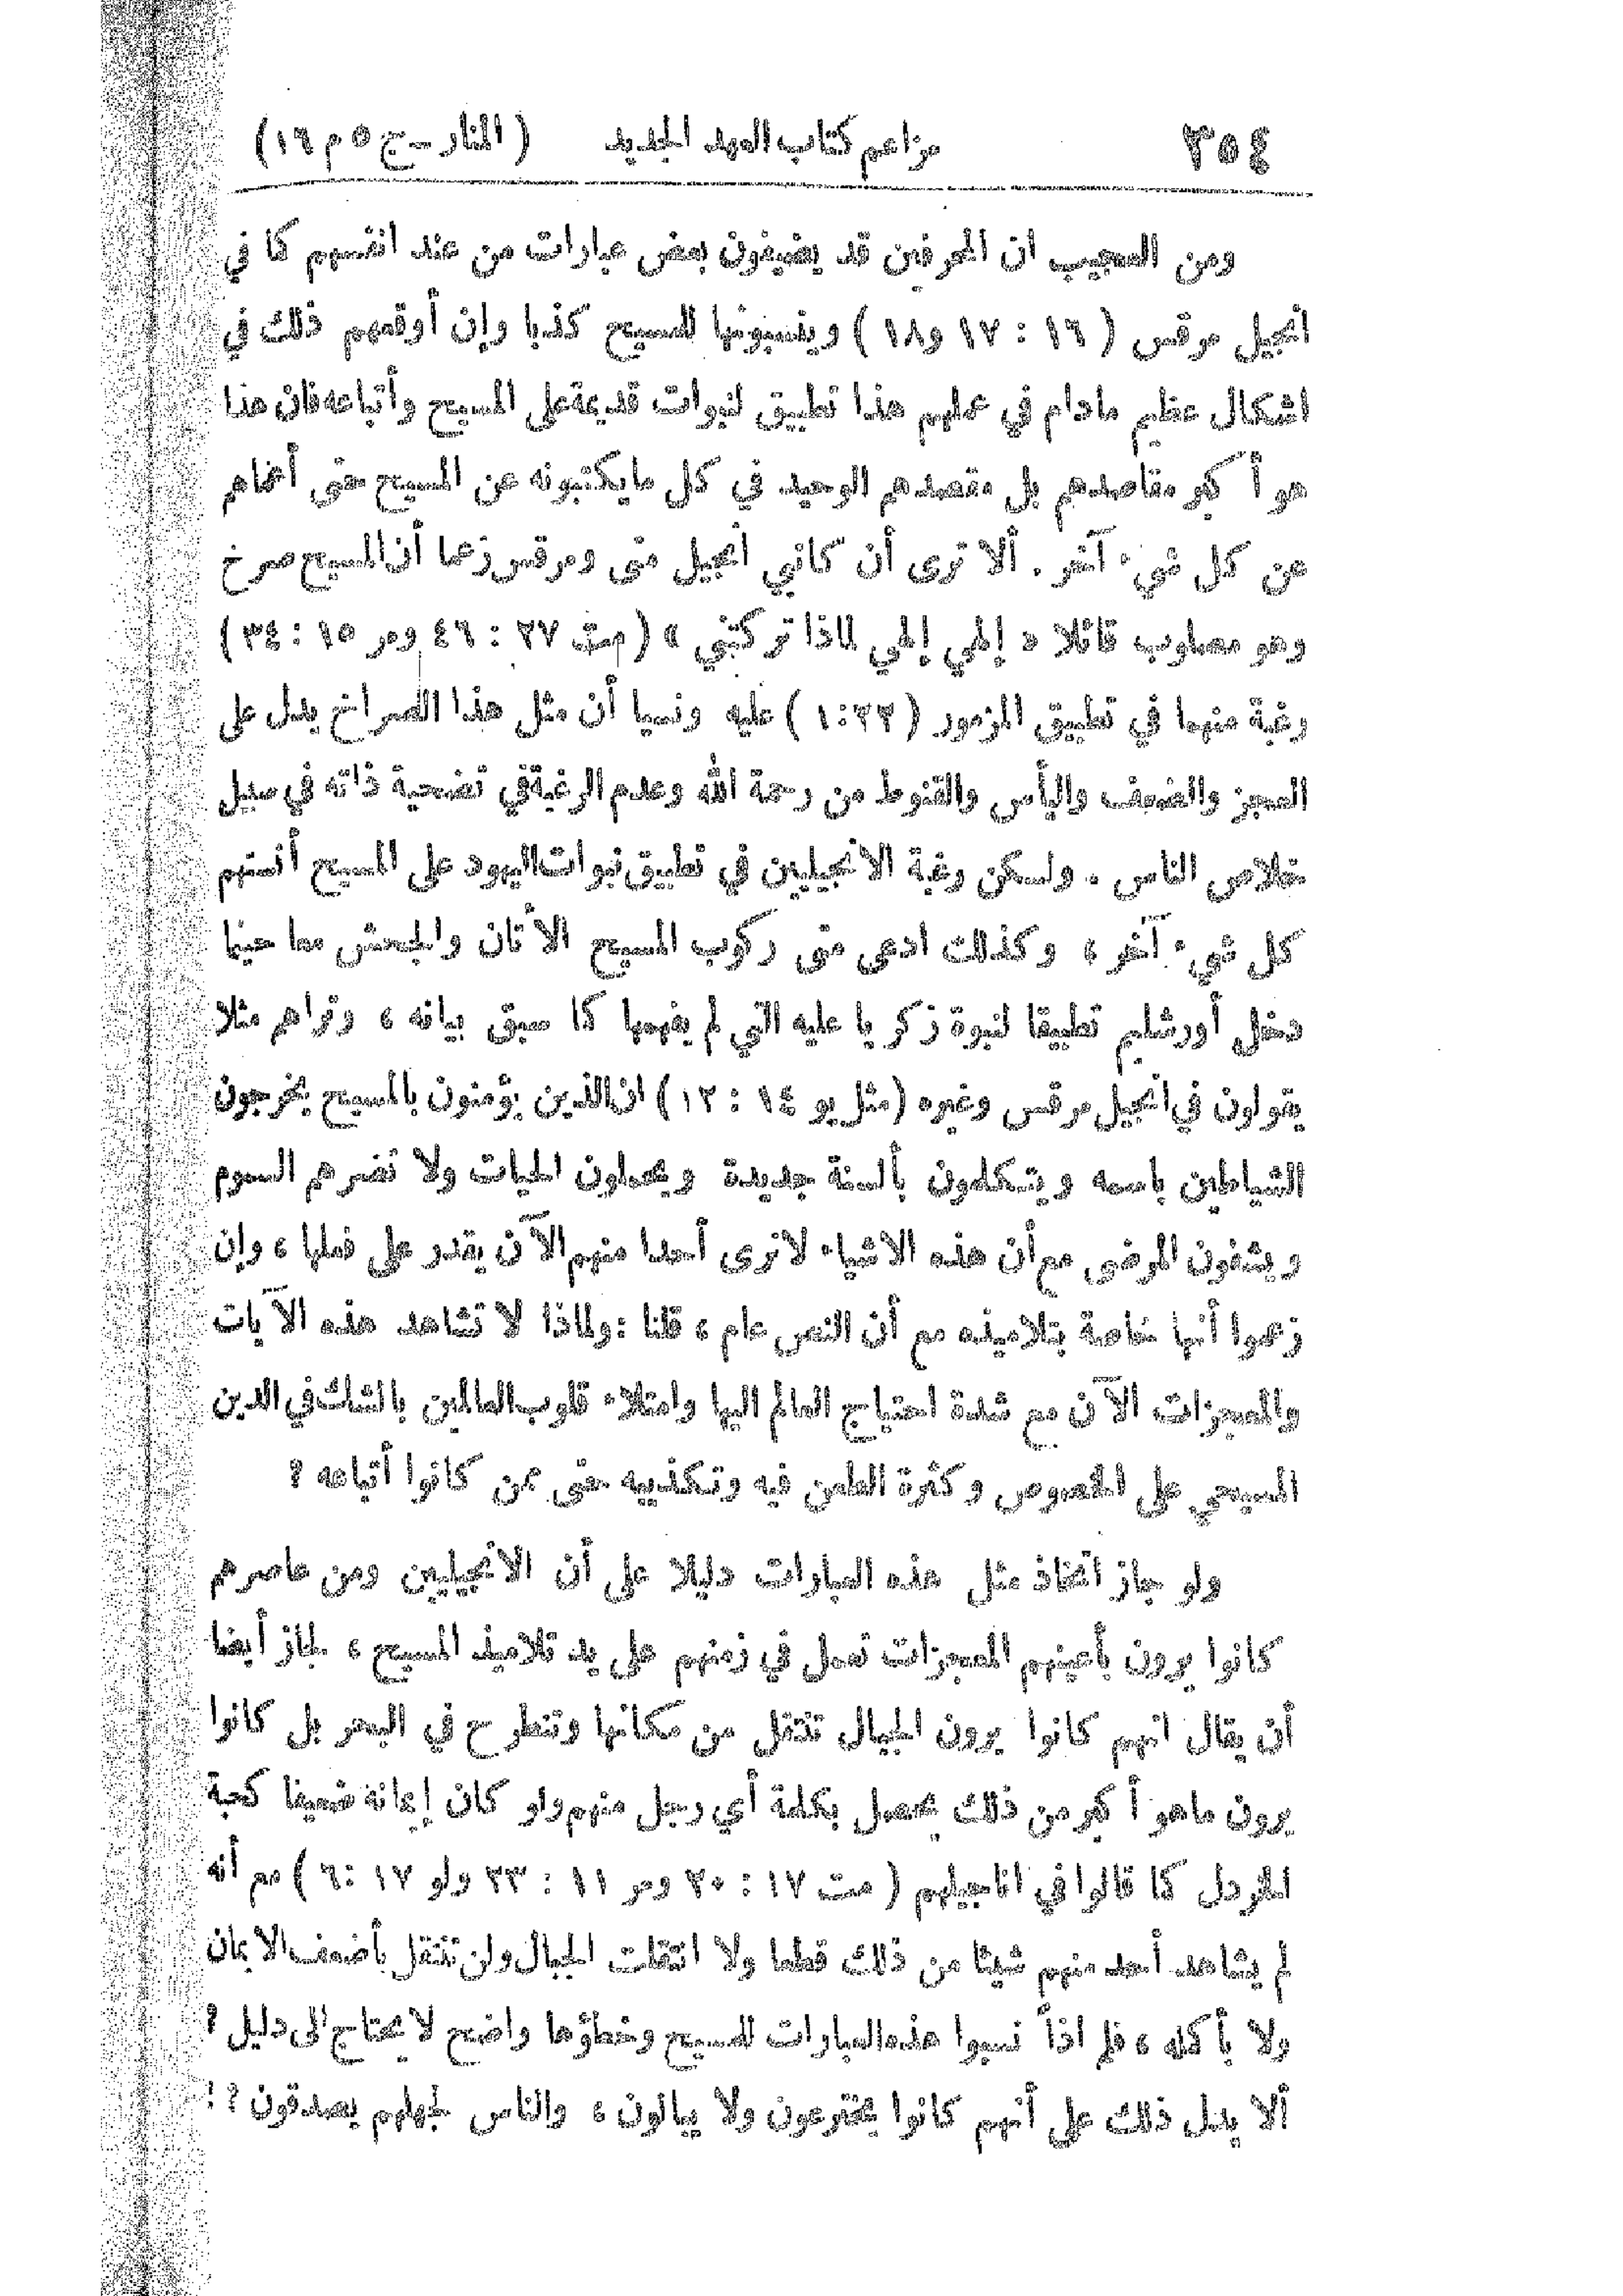 ٣٥٤ مزاعم كتاب العهد الجديد ( المنار – ج ٥ م ١٦ )
ومن العجيب ان المحرفين قد يضيفون بعض عبارات من عند انفسهم كما في
انجيل مرقس ( ١٦ : ١٧ و١٨ ) وينسبونها للمسيح كذبا وإن أوقعهم ذلك في
اشكال عظيم مادام في عملهم هذا تطبيق لنبوات قديمة على المسيح وأتباعه فان هذا
هو أكبر مقاصدهم بل مقصدهم الوحيد في كل مايكتبونه عن المسيح حتى أعماهم
عن كل شيء آخر . ألا ترى أن كاتبي انجيل متى ومرقس زعما أن المسيح صرخ
وهو مصلوب قائلا « إلهي إلهي لماذا تركتني » ( مت ٢٧ : ٤٦ ومر ١٥ : ٣٤ )
رغبة منهما في تطبيق المزمور ( ٢٢ : ١ ) عليه ونسيا أن مثل هذا الصراخ يدل على
العجز والضعف واليأس والقنوط من رحمة الله وعدم الرغبة في تضحية ذاته في سبيل
خلاص الناس . ولكن رغبة الانجيليين في تطبيق نبوات اليهود على المسيح أنستهم
كل شيء آخر ، وكذلك ادعى متى ركوب المسيح الأتان والجحش معا حينما
دخل أورشليم تطبيقا لنبوة زكريا عليه التي لم يفهمها كما سبق بيانه ، وتراهم مثلا
يقولون في انجيل مرقس وغيره ( مثل يو ١٤ : ١٢ ) ان الذين يؤمنون بالمسيح يخرجون
الشياطين باسمه ويتكلمون بألسنة جديدة ويحملون الحيات ولا تضرهم السموم
ويشفون المرضى مع أن هذه الاشياء لا نرى أحدا منهم الآن يقدر على فعلها ، وإن
زعموا أنها خاصة بتلاميذه مع أن النص عام ، قلنا : ولماذا لا تشاهد هذه الآيات
والمعجزات الآن مع شدة احتياج العالم اليها وامتلاء قلوب العالمين بالشك في الدين
المسيحي على الخصوص وكثرة الطعن فيه وتكذيبه حتى ممن كانوا أتباعه ؟
ولو جاز اتخاذ مثل هذه العبارات دليلا على أن الانجيليين ومن عاصرهم
كانوا يرون بأعينهم المعجزات تعمل في زمنهم على يد تلاميذ المسيح ، لجاز أيضا
أن يقال انهم كانوا يرون الجبال تنتقل من مكانها وتنطرح في البحر بل كانوا
يرون ماهو أكبر من ذلك يحصل بكلمة أي رجل منهم ولو كان إيمانه ضعيفا كحبة
الخردل كما قالوا في اناجيلهم ( مت ١٧ : ٢٠ ومر ١١ : ٢٣ ولو ١٧ : ٦ ) مع أنه
لم يشاهد أحد منهم شيئا من ذلك قطعا ولا انتقلت الجبال ولن تنتقل بأضعف الايمان
ولا بأكمله ، فلم اذاً نسبوا هذه العبارات للمسيح وخطؤها واضح لا يحتاج الى دليل ؟
ألا يدل ذلك على أنهم كانوا يخترعون ولا يبالون ، والناس لجهلهم يصدقون ؟ !